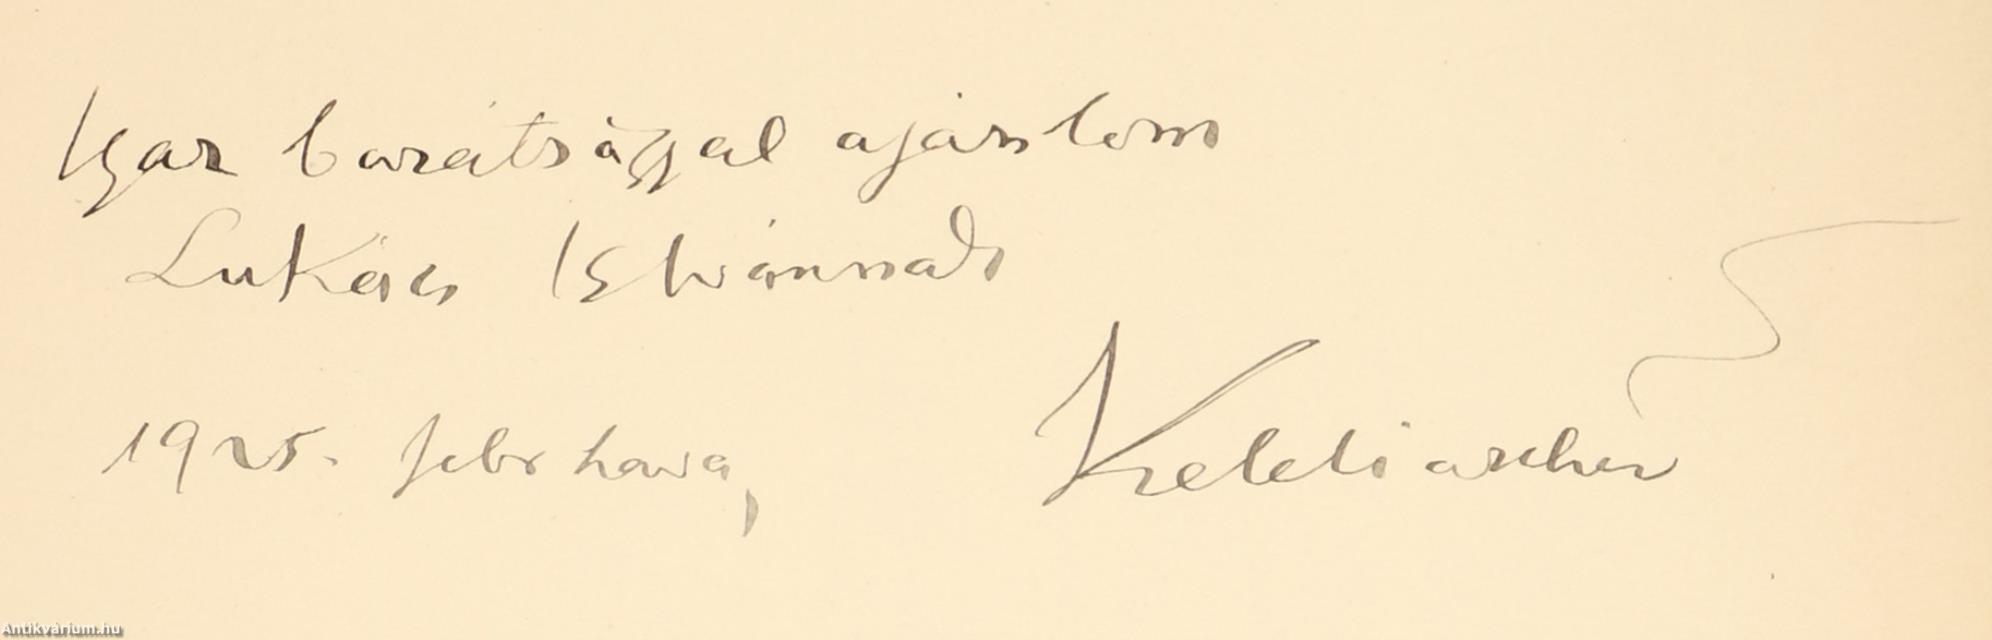 Igaz barátsággal ajánlom
Lukács Istvánnak
1925. febr hava,
Keleti Arthur
Antikvárium.hu